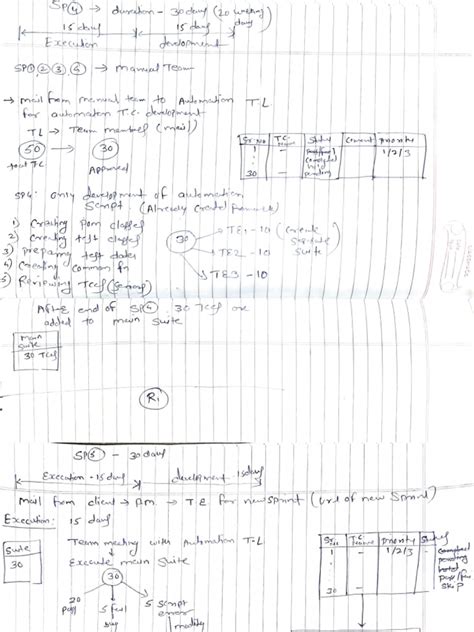 SP④ → duration - 30 days (20 working days)
15 days 15 days
Execution development
SP①,②,③,④ → manual Team
→ mail from manual team to Automation TL
for automation T.C. development
TL → Team members (mail)
50 → 30
total TC Approved
Sr.No T.C. Name Status Comment Priority
1 - pass/fail 1/2/3
completed
hold
30 - pending
SP4: only development of automation
script. (Already created framework)
1) Creating POM classes
2) Creating test classes
3) preparing test data
4) Creating common fn
5) Reviewing TCs (Senior)
30
TE1 - 10 (Create separate suite
TE2 - 10
TE3 - 10
After end of SP④ 30 TCs are
added to main suite
main suite
30 TCs
R1
SP⑤ - 30 days
Execution - 15 days development - 15 days
mail from client → P.M. → TE for new sprint (url of new sprint)
Execution: 15 days
Suite
30
Team meeting with Automation T.L
Execute main suite
30
20 pass 5 fail 5 script error
modify
Sr.No T.C Name Priority Status
1 - 1/2/3 - completed
pending
hold
pass/fail
30 - skip